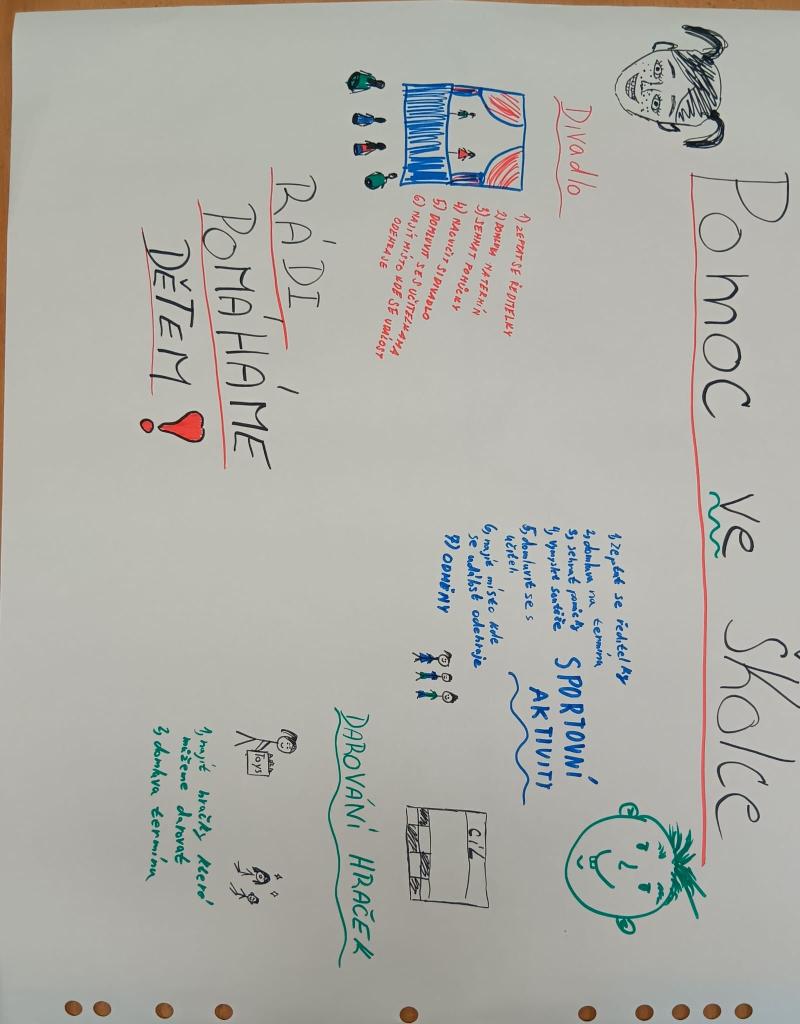 Pomoc ve školce
Divadlo
1) ZEPTAT SE ŘEDITELKY
2) DOMLUVA NA TERMÍN
3) SEHNAT POMŮCKY
4) NACVIČIT SI DIVADLO
5) DOMLUVIT SE S UČITELKAMA
6) NAJÍT MÍSTO KDE SE UDÁLOST
ODEHRAJE
RÁDI
POMÁHÁME
DĚTEM
SPORTOVNÍ
AKTIVITY
1, zeptat se ředitelky
2, domluva na termínu
3, sehnat pomůcky
4, vymyslet soutěže
5, domluvit se s
učiteli
6, najít místo kde
se událost odehraje
7) ODMĚNY
CÍL
DAROVÁNÍ HRAČEK
Toys
1, najít hračky které
můžeme darovat
3, domluva termínu